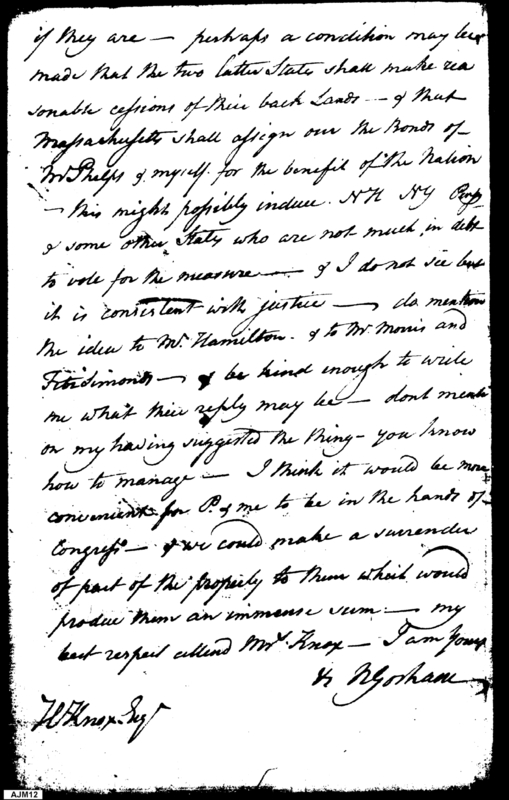 if they are — perhaps a condition may be
made that the two latter States shall make rea
sonable cessions of their back Lands — & that
Massachusetts shall assign over the Bonds of
Mr Phelps & myself for the benefit of the Nation
— this might possibly induce NH NY
& some other States who are not much in debt
to vote for the measure — & I do not see but
it is consistent with justice — do mention
the idea to Mr. Hamilton & to Mr Morris and
Fitzsimonds — & be kind enough to write
me what their reply may be — dont menti
on my having suggested the thing — you know
how to manage — I think it would be more
convenient for P. & me to be in the hands of
Congress — & we could make a surrender
of part of the property to them which would
produce them an immense sum — my
best respect attend Mrs. Knox — I am yours
& NGorham
H Knox Esqr
AJM12